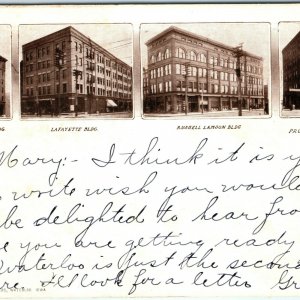 DG.
LAFAYETTE BLDG
RUSSELL LAMSON BLDG
PRE
Mary:- I think it is y
write wish you would
be delighted to hear fro
e you are getting ready
Waterloo is just the secon
re. I'll look for a letter